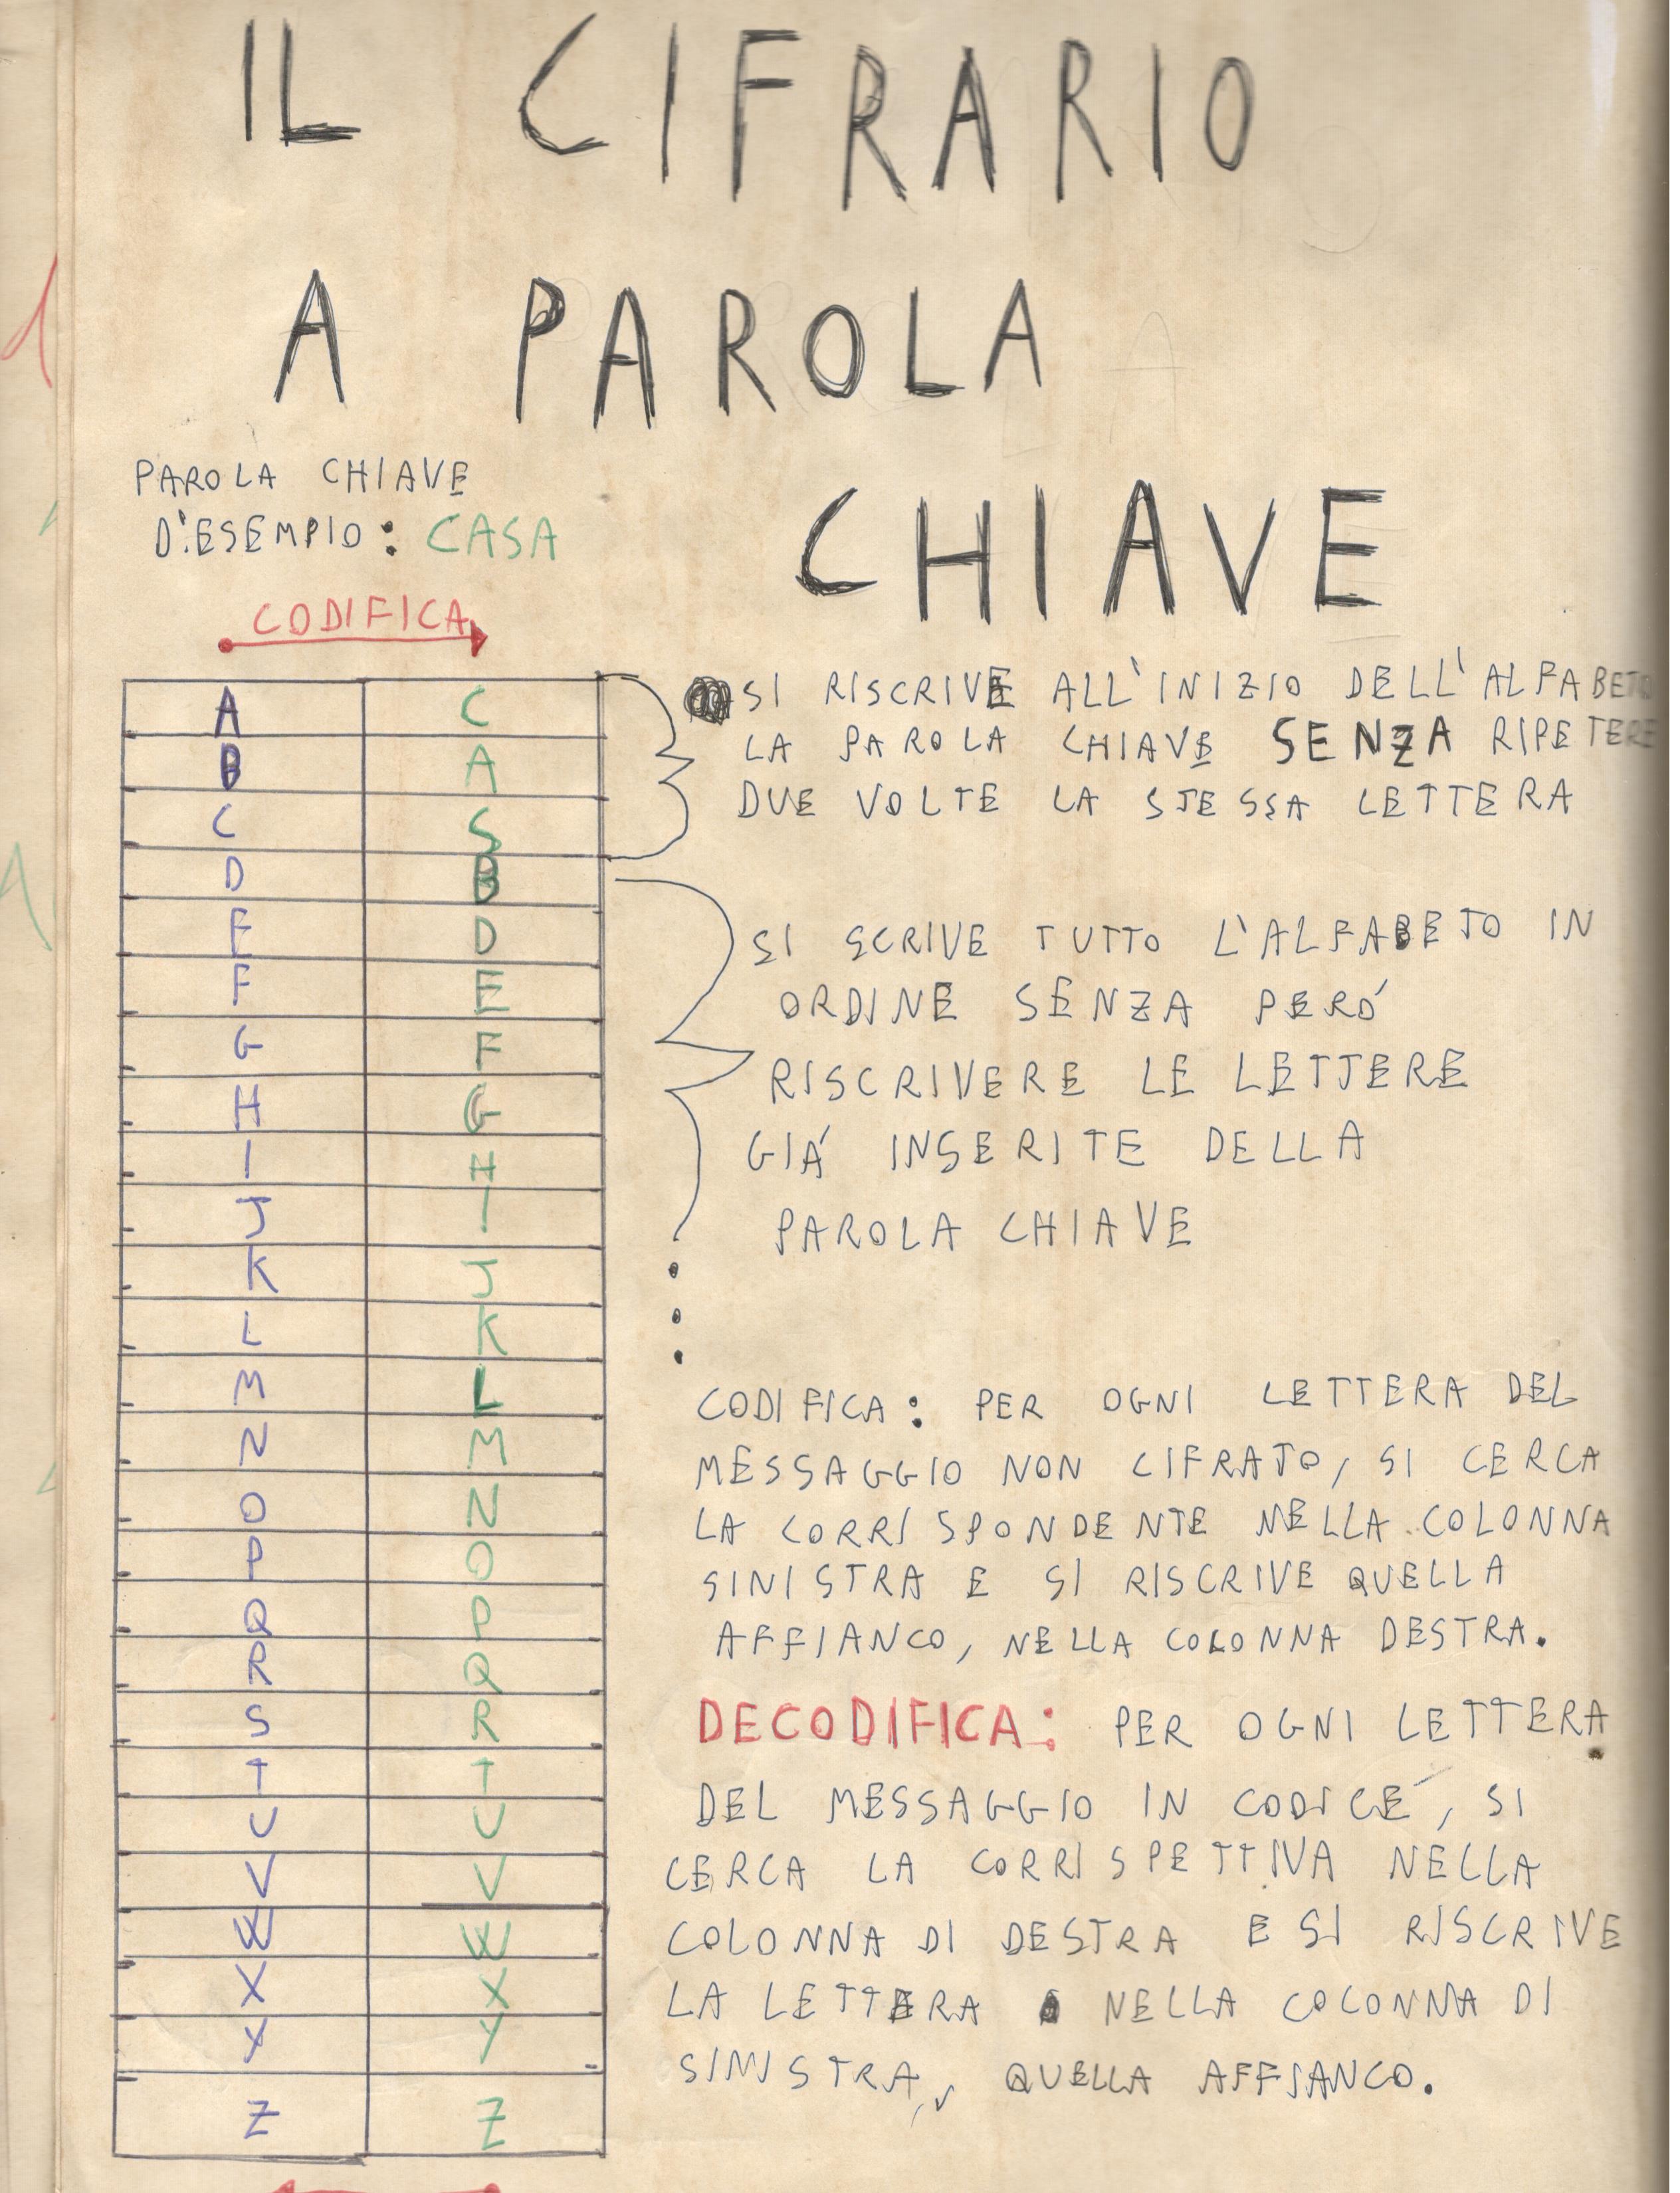 IL CIFRARIO
A PAROLA
CHIAVE
PAROLA CHIAVE
D'ESEMPIO: CASA
CODIFICA
A C
B A
C S
D B
E D
F E
G F
H G
I H
J I
K J
L K
M L
N M
O N
P O
Q P
R Q
S R
T T
U U
V V
W W
X X
Y Y
Z Z
SI RISCRIVE ALL'INIZIO DELL'ALFABETO
LA PAROLA CHIAVE SENZA RIPETERE
DUE VOLTE LA STESSA LETTERA
SI SCRIVE TUTTO L'ALFABETO IN
ORDINE SENZA PERÓ
RISCRIVERE LE LETTERE
GIÁ INSERITE DELLA
PAROLA CHIAVE
CODIFICA: PER OGNI LETTERA DEL
MESSAGGIO NON CIFRATO, SI CERCA
LA CORRISPONDENTE NELLA COLONNA
SINISTRA E SI RISCRIVE QUELLA
AFFIANCO, NELLA COLONNA DESTRA.
DECODIFICA: PER OGNI LETTERA
DEL MESSAGGIO IN CODICE, SI
CERCA LA CORRISPETTIVA NELLA
COLONNA DI DESTRA E SI RISCRIVE
LA LETTERA NELLA COLONNA DI
SINISTRA, QUELLA AFFIANCO.